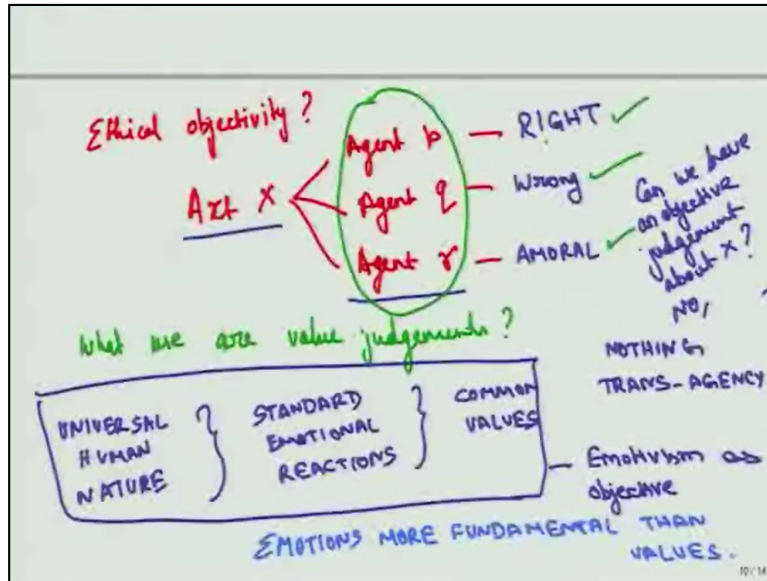 Ethical objectivity?
Act X
Agent p — RIGHT ✓
Agent q — Wrong ✓
Agent r — AMORAL ✓
Can we have
an objective
judgement
about X?
NO,
NOTHING
TRANS-AGENCY
What are value judgements?
UNIVERSAL
HUMAN
NATURE
STANDARD
EMOTIONAL
REACTIONS
COMMON
VALUES
— Emotivism as
objective
EMOTIONS MORE FUNDAMENTAL THAN
VALUES.